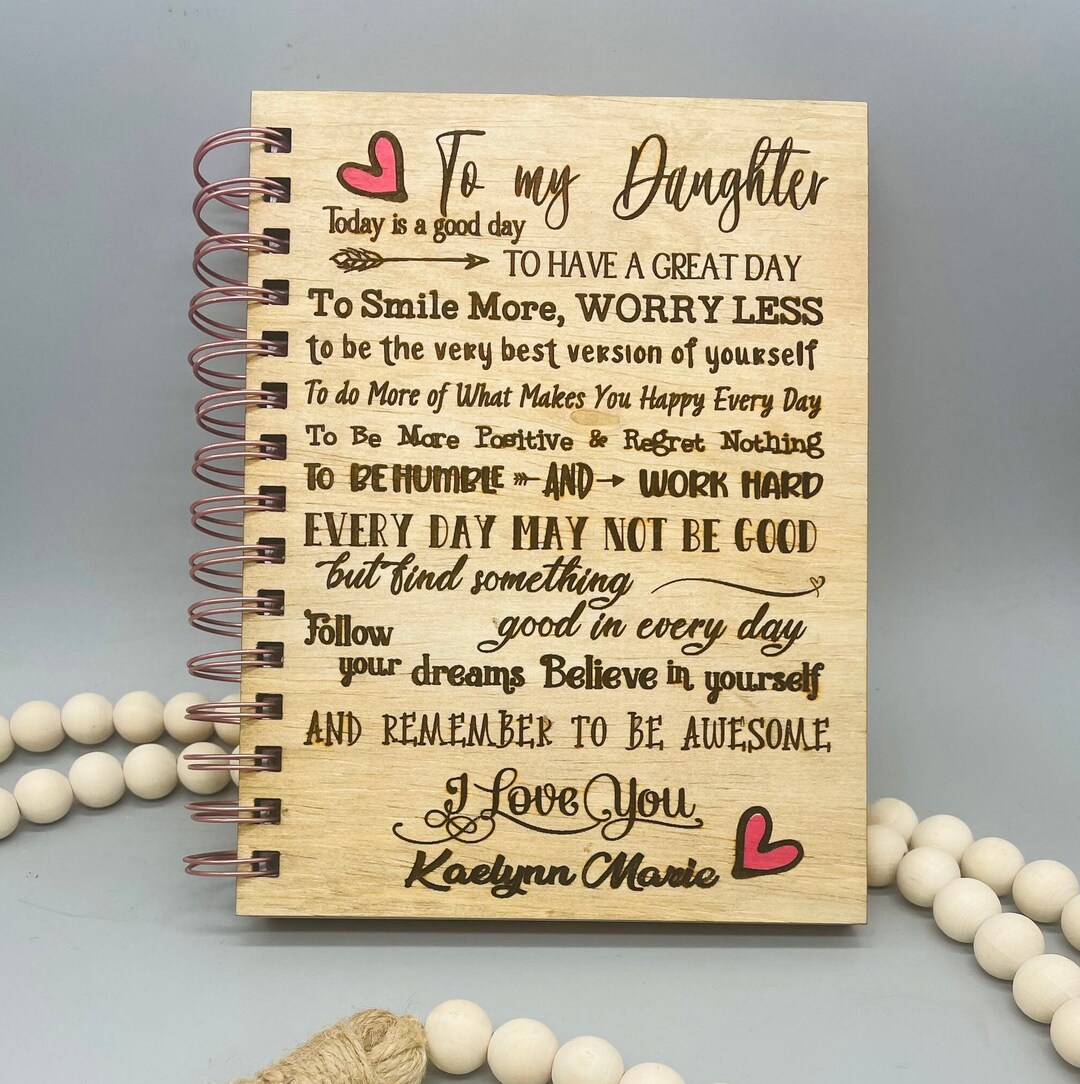 To my Daughter
Today is a good day
TO HAVE A GREAT DAY
To Smile More, WORRY LESS
to be the very best version of yourself
To do More of What Makes You Happy Every Day
To Be More Positive & Regret Nothing
TO BE HUMBLE AND WORK HARD
EVERY DAY MAY NOT BE GOOD
but find something
good in every day
Follow
your dreams Believe in yourself
AND REMEMBER TO BE AWESOME
I Love You
Kaelynn Marie